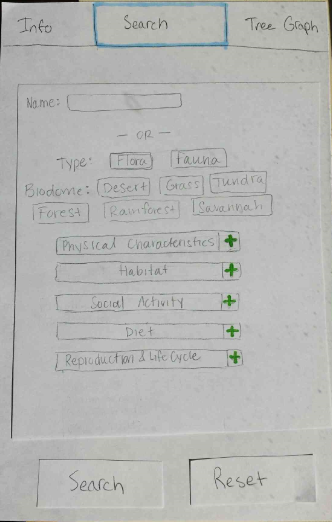 Info Search Tree Graph
Name:
— OR —
Type: Flora Fauna
Biodome: Desert Grass Tundra
Forest Rainforest Savannah
Physical Characteristics +
Habitat +
Social Activity +
Diet +
Reproduction & Life Cycle +
Search Reset